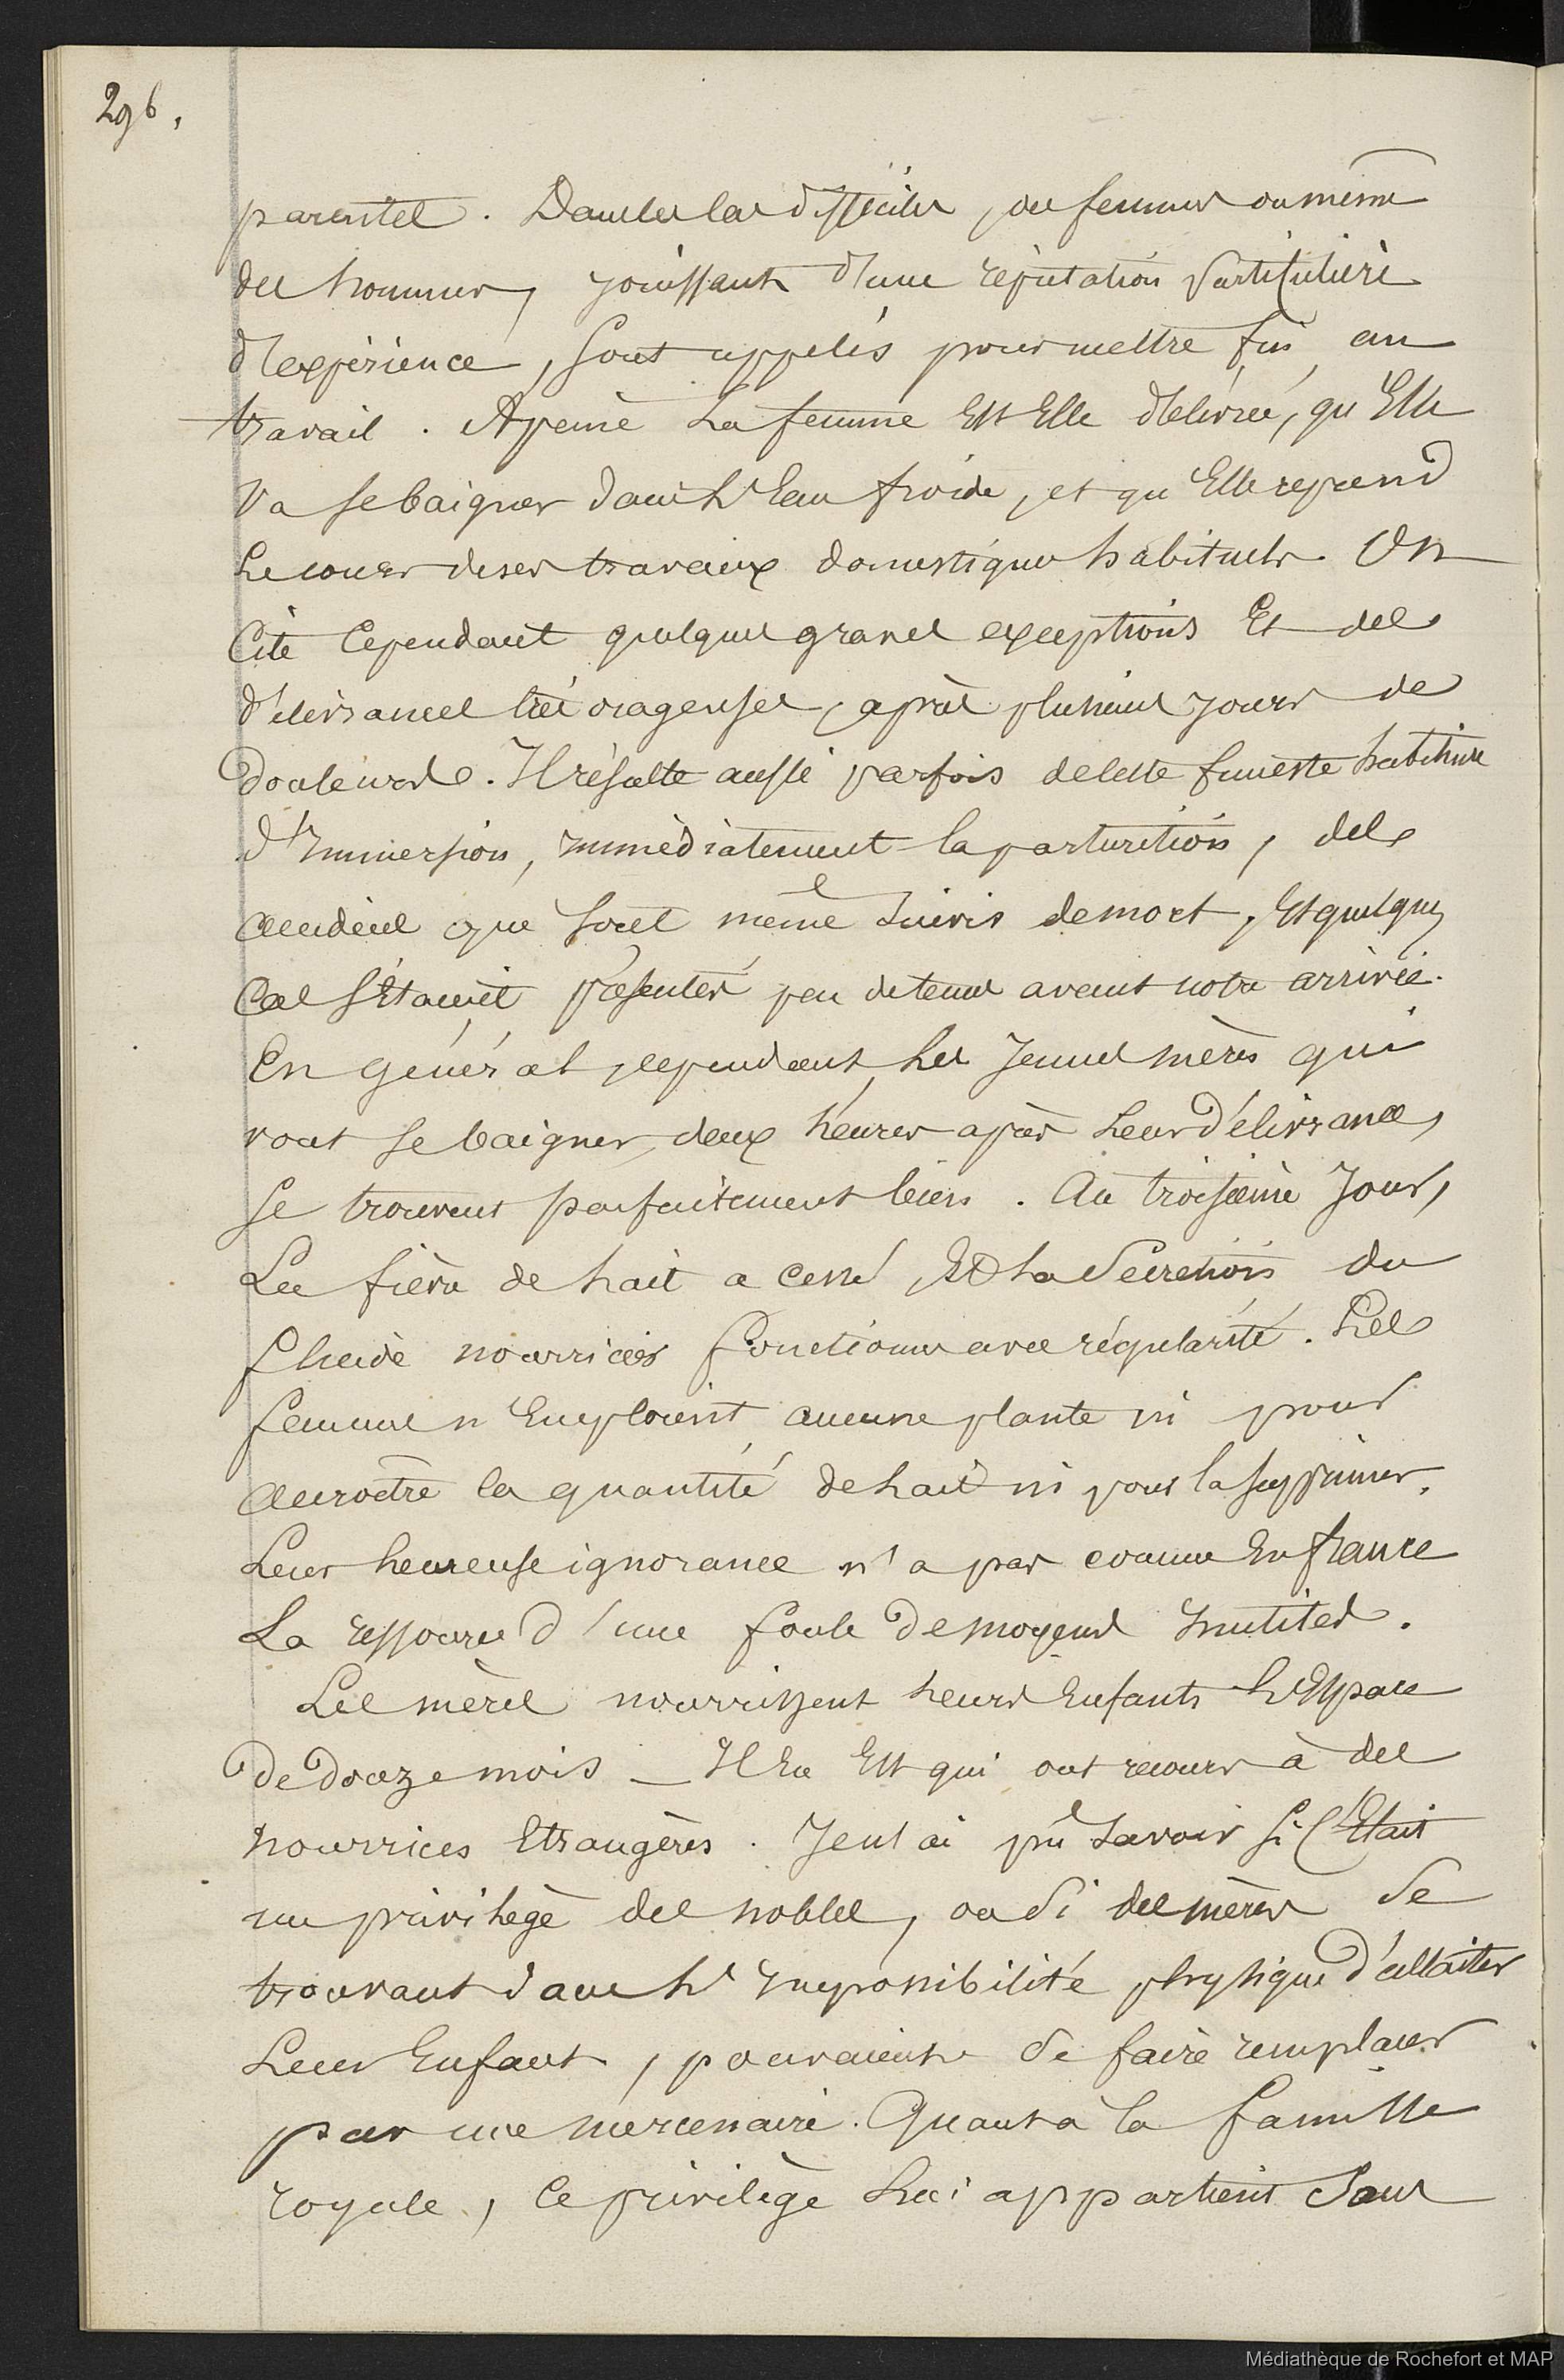 296.
parentes. Dans les cas difficiles, des femmes ou même
des hommes, jouissant d'une réputation particulière
d'expérience, sont appelés pour mettre fin au
travail. A peine la femme est elle délivrée, qu'elle
va se baigner dans l'eau froide, et qu'elle reprend
le cours de ses travaux domestiques habituels. On
cite cependant quelques graves exceptions et des
délivrances très orageuses, après plusieurs jours de
douleurs. Il résulte aussi parfois de cette funeste habitude
d'immersion, immédiatement la parturition, des
accidents que sont même suivis de mort, et quelques
cas s'étaient présentés peu de temps avant notre arrivée.
En général cependant, les jeunes mères qui
vont se baigner, deux heures après leur délivrance,
se trouvent parfaitement bien. Au troisième jour,
la fièvre de lait a cessé, et la secrétion du
fluide nourricier fonctionne avec régularité. Les
femmes n'emploient aucune plante ni pour
accroître la quantité de lait ni pour la supprimer.
Leur heureuse ignorance n'a pas comme en france
la ressource d'une foule de moyens inutiles.
Les mères nourrissent leurs enfants l'espace
de douze mois _ Il en est qui ont recours à des
nourrices étrangères. Je n'ai pu savoir si c'était
un privilège des nobles, ou si des mères se
trouvant dans l'impossibilité physique d'allaiter
leur enfant, pouvaient se faire remplacer
par une mercenaire. Quant à la famille
royale, ce privilège lui appartient sans
Médiathèque de Rochefort et MAP